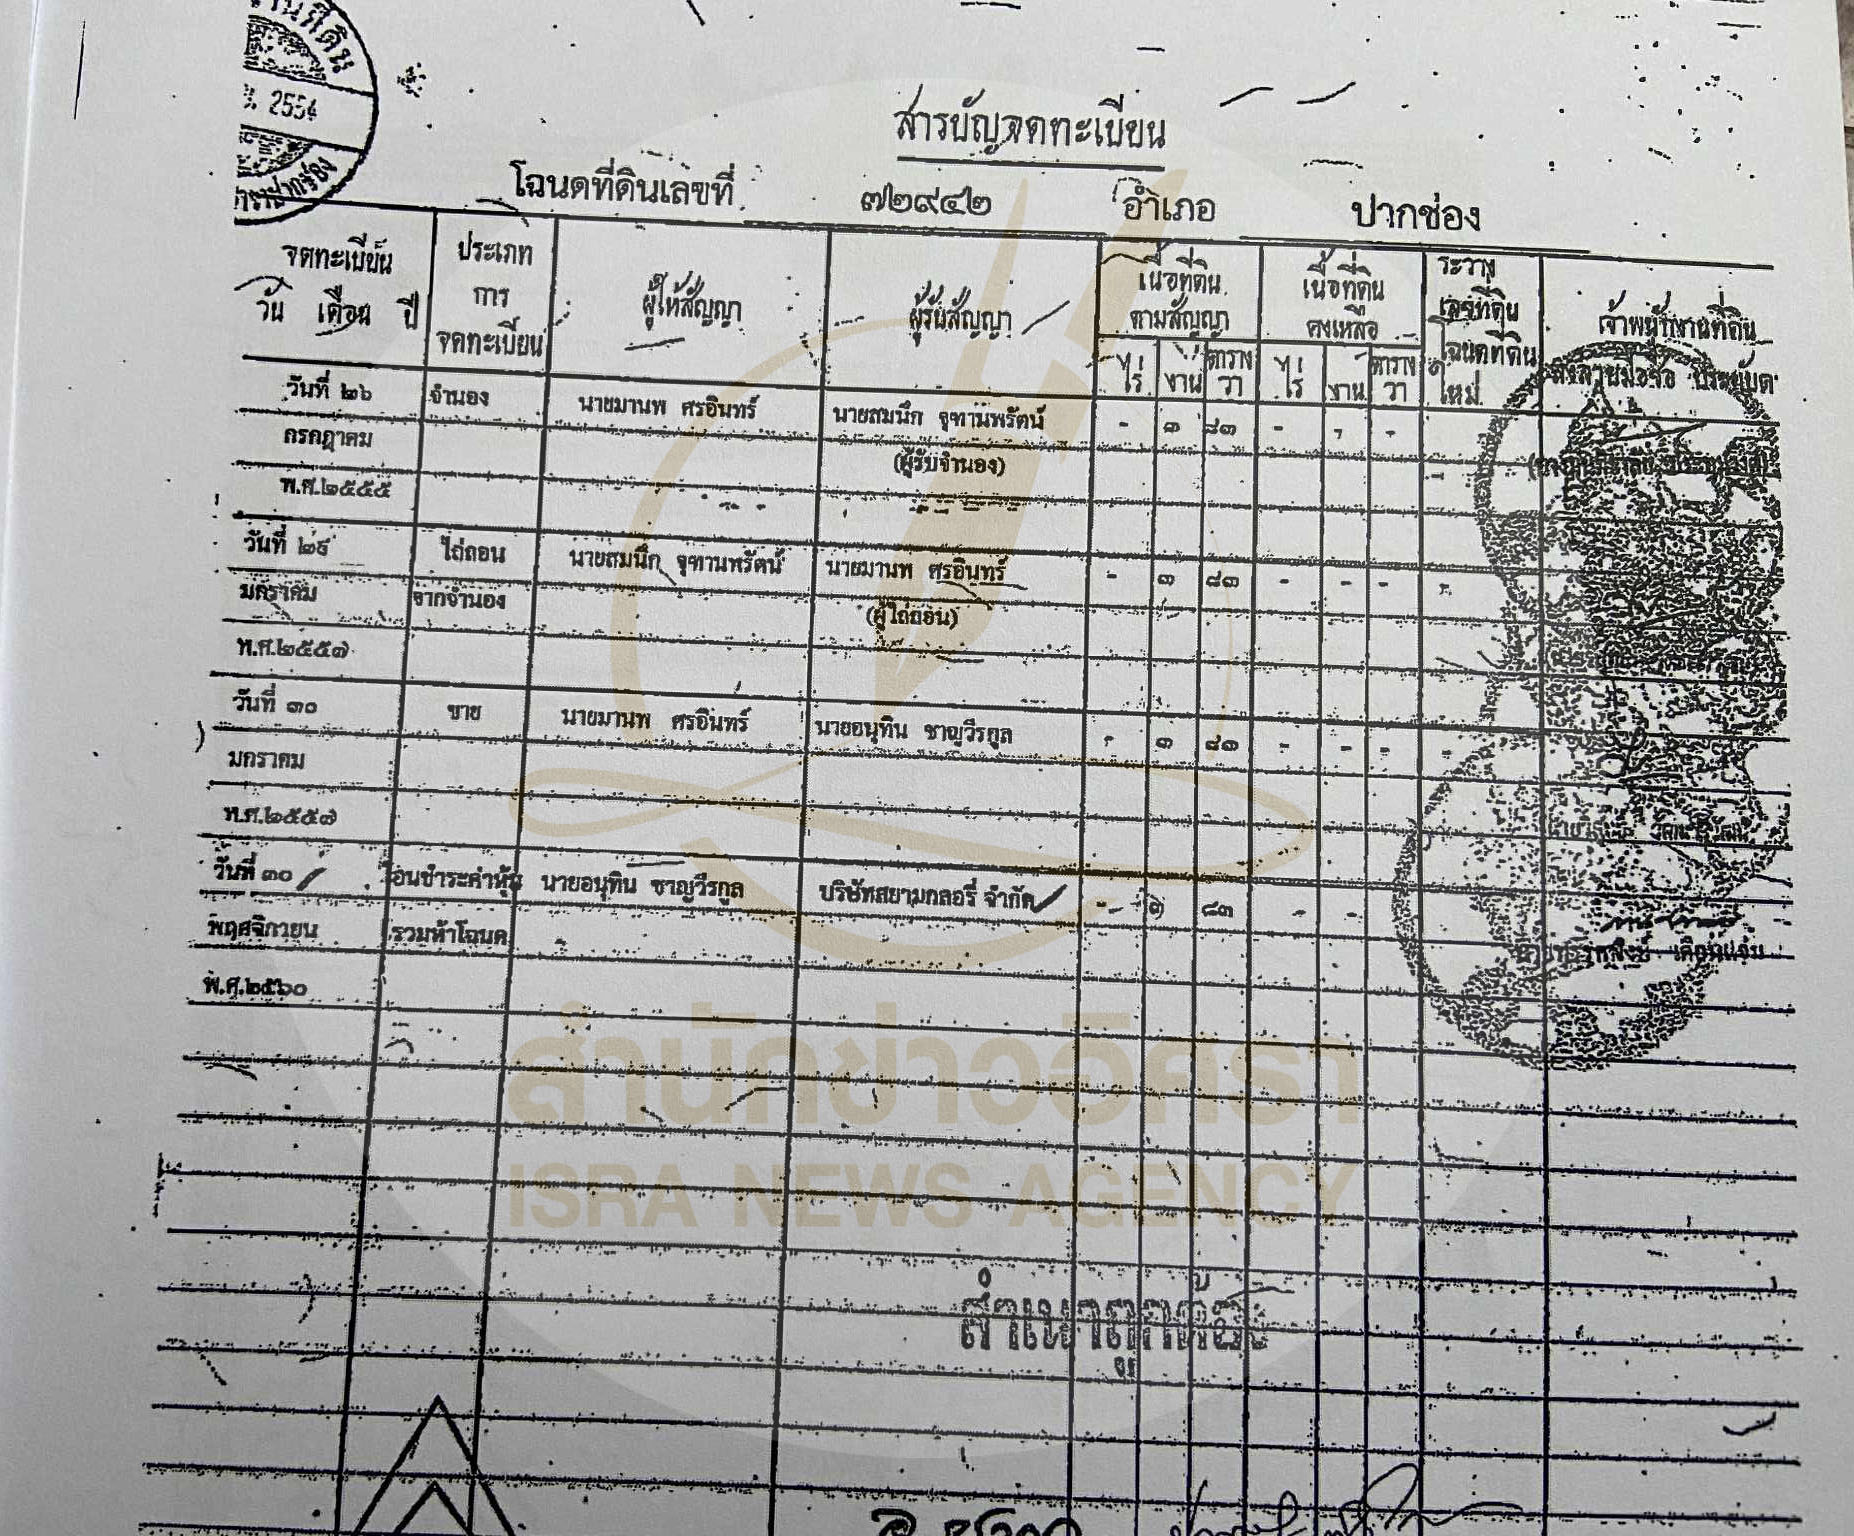 2554
สารบัญจดทะเบียน
โฉนดที่ดินเลขที่ ๗๒๙๔๒ อำเภอ ปากช่อง
จดทะเบียน วัน เดือน ปี
ประเภท การ จดทะเบียน
ผู้ให้สัญญา
ผู้รับสัญญา
เนื้อที่ดิน ตามสัญญา
เนื้อที่ดิน คงเหลือ
ระวาง เลขที่ดิน โฉนดที่ดิน ใหม่
เจ้าพนักงานที่ดิน ลงลายมือชื่อ ประทับตรา
ไร่ งาน ตารางวา ไร่ งาน ตารางวา
วันที่ ๒๖ จำนอง นายมานพ ศรอินทร์ นายสมนึก จุฑานพรัตน์ - ๓ ๘๓ - - -
กรกฎาคม (ผู้รับจำนอง)
พ.ศ.๒๕๕๕
วันที่ ไถ่ถอน นายสมนึก จุฑานพรัตน์ นายมานพ ศรอินทร์ - ๓ ๘๓ - - - -
มกราคม จากจำนอง (ผู้ไถ่ถอน)
พ.ศ.๒๕๕๗
วันที่ ๓๐ ขาย นายมานพ ศรอินทร์ นายอนุทิน ชาญวีรกูล - ๓ ๘๓ - - - -
มกราคม
พ.ศ.๒๕๕๗
วันที่ ๓๐ โอนชำระค่าหุ้น นายอนุทิน ชาญวีรกูล บริษัทสยามกลอรี่ จำกัด - ๘๓ - -
พฤศจิกายน รวมห้าโฉนด
พ.ศ.๒๕๖๐
สำนักข่าวอิศรา
ISRA NEWS AGENCY
สำเนาถูกต้อง